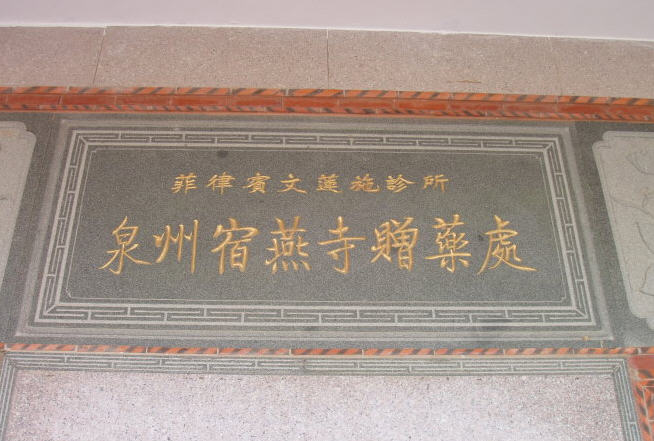 菲律賓文蓮施診所
泉州宿燕寺贈藥處